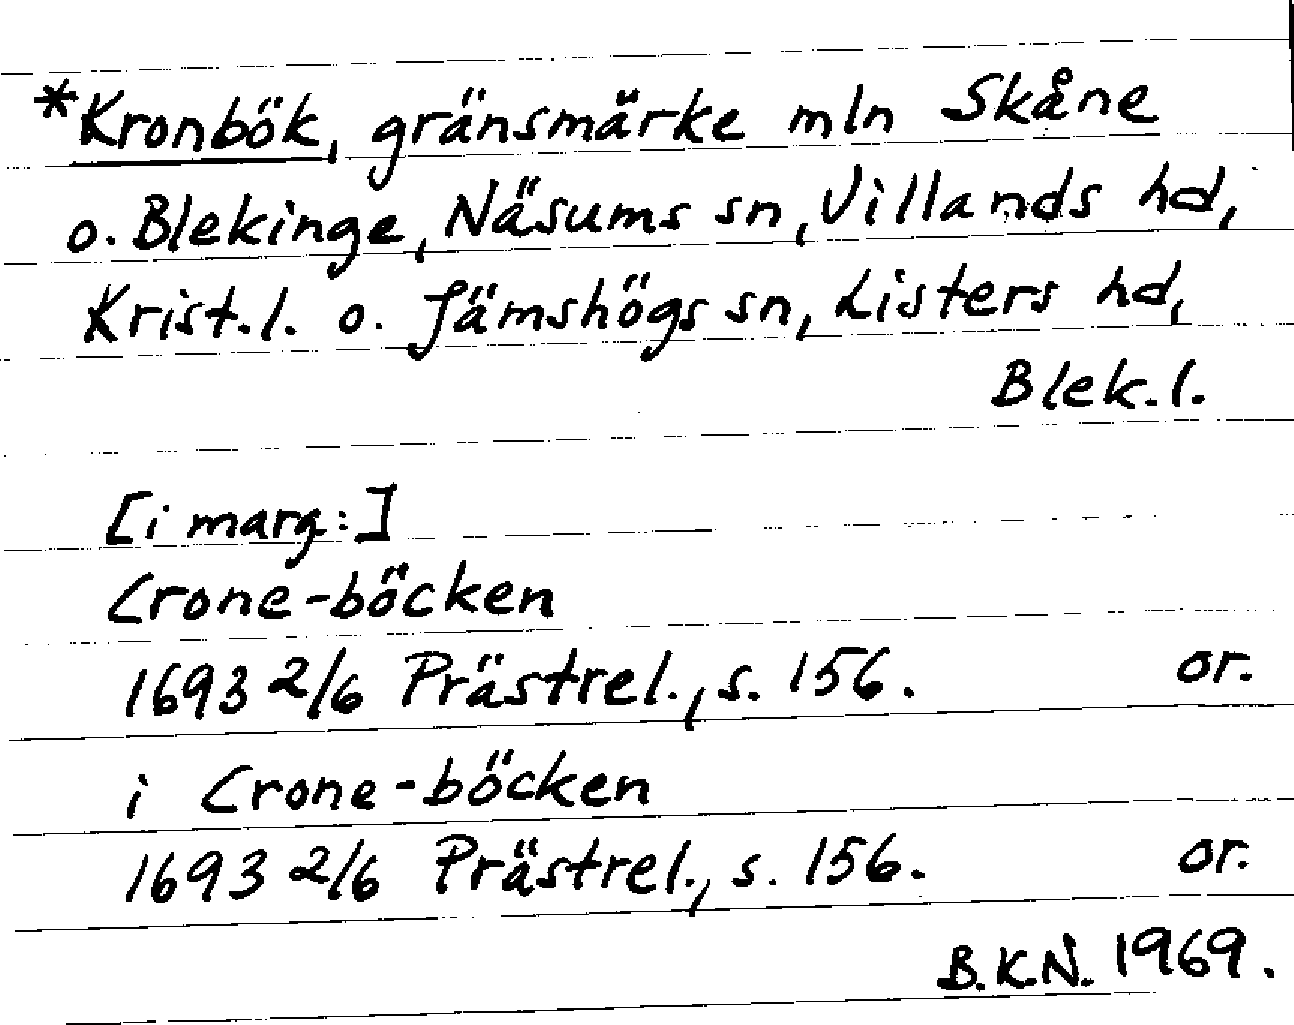 *Kronbök, gränsmärke mln Skåne
o. Blekinge, Näsums sn, Villands hd,
Krist.l. o. Jämshögs sn, Listers hd,
Blek.l.
[i marg:]
Crone-böcken
1693 2/6 Prästrel., s. 156. or.
i Crone-böcken
1693 2/6 Prästrel., s. 156. or.
B.K.N. 1969.